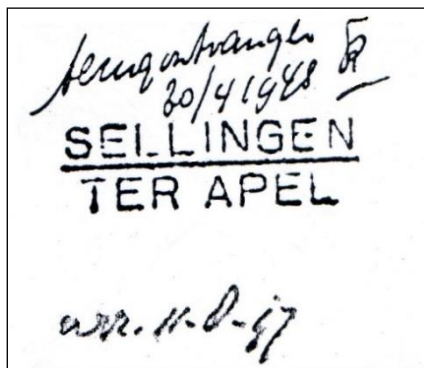 terugontvangen
30/4 1948
SELLINGEN
TER APEL
11-8-47